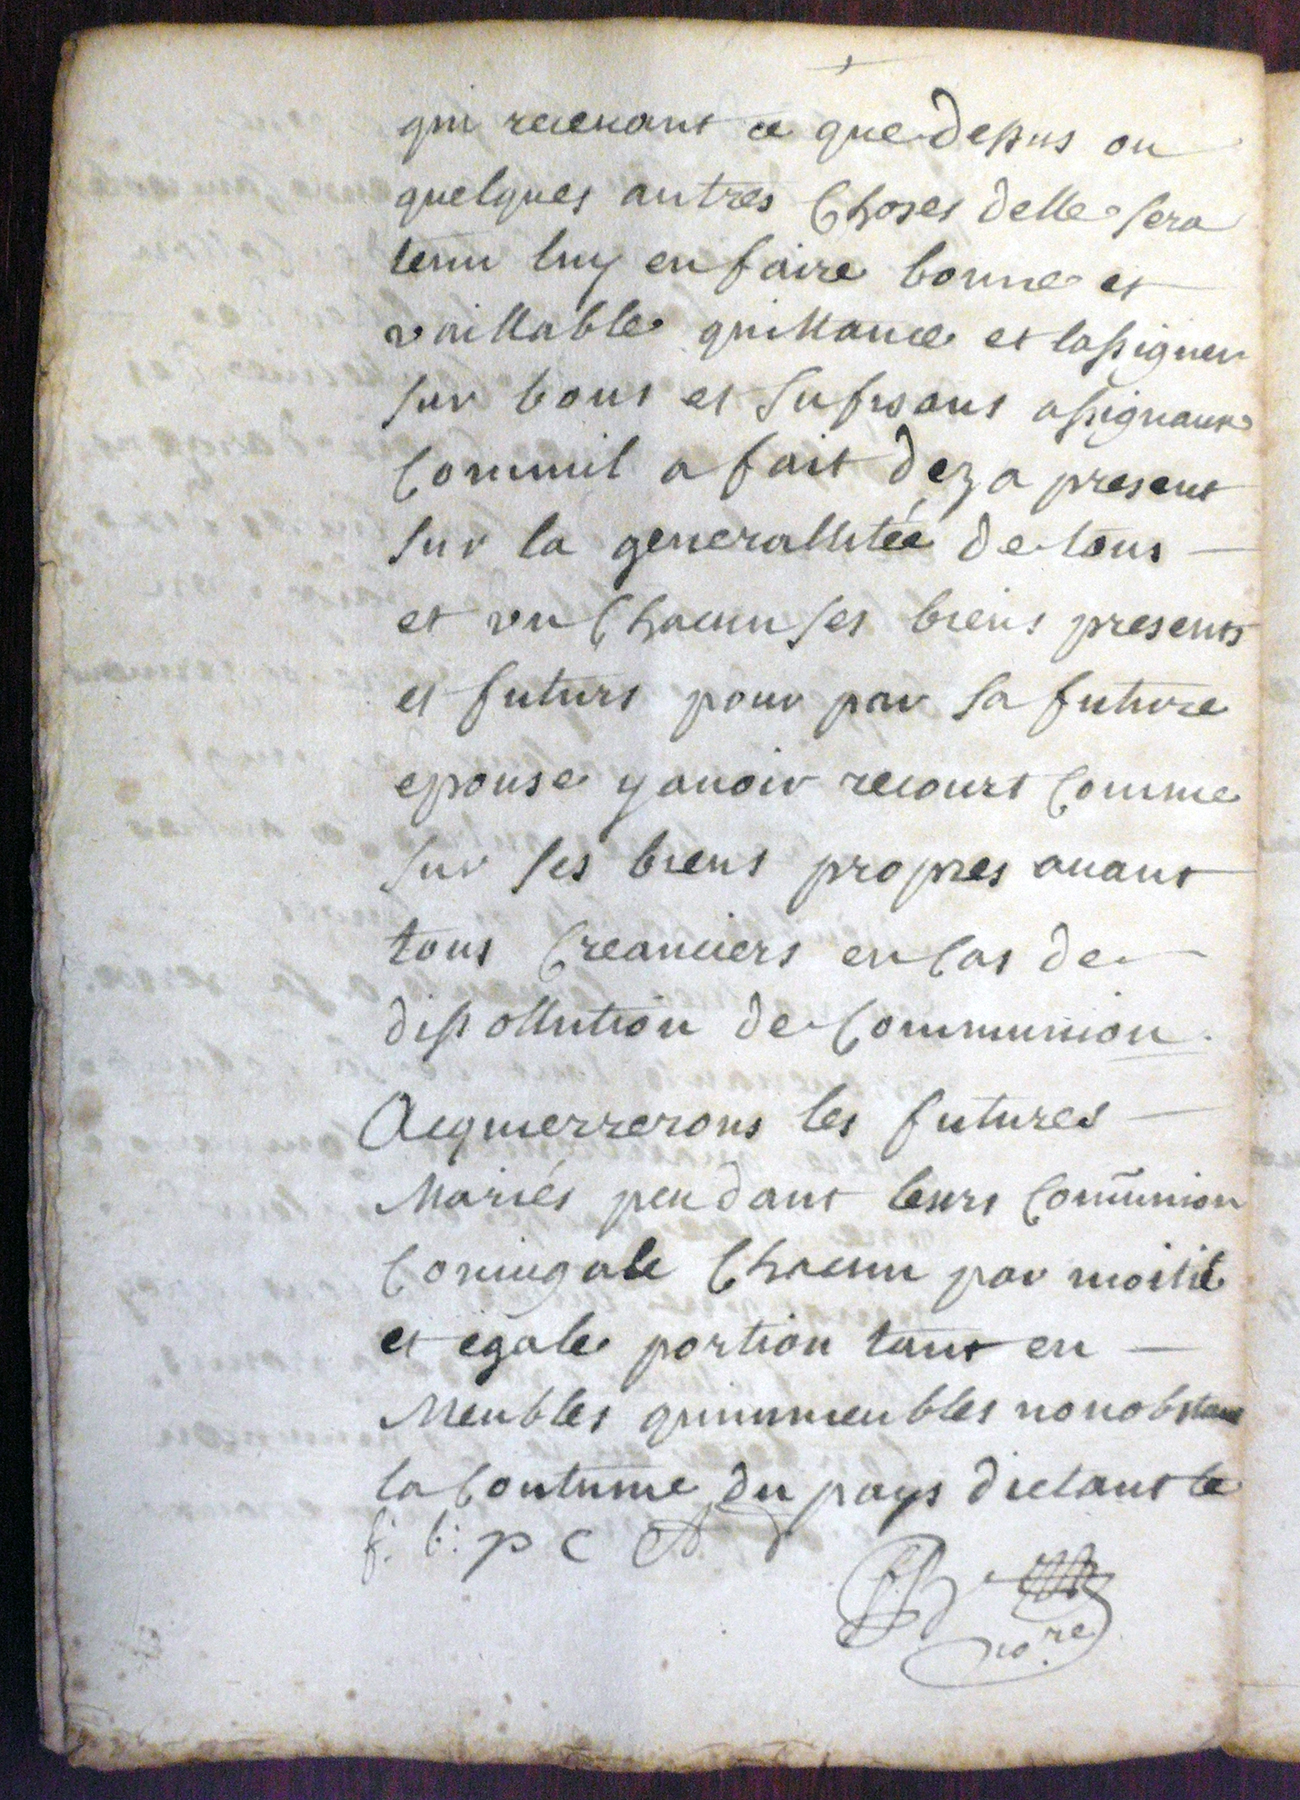 qui recevant ce que dessus ou
quelques autres Choses delle sera
tenu luy en faire bonne et
vaillable quittance et lassigner
sur bons et sufisans assignaux
Commil a fait deza present
sur la generallitée de tous
et un Chacun ses biens presents
et futurs pour par sa future
epouse y avoir recourt Comme
sur ses biens propres avant
tous Creanciers en Cas de
dissollution de Communion.
Acquerrerons les futures
Mariés pendant leurs Com̃union
Coniugale Chacun par moitié
et egale portion tant en
Meubles quimmeubles nonobstant
la Coutume du pays dictant le
f: b: P C A
nore